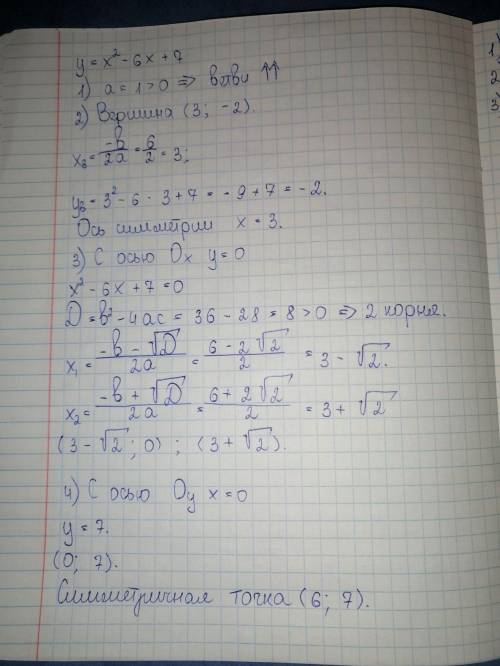 y = x² - 6x + 7
1) a = 1 > 0 => ветви ↑↑
2) Вершина (3; -2).
x₆ = -b/2a = 6/2 = 3;
y₆ = 3² - 6 · 3 + 7 = - 9 + 7 = - 2.
Ось симметрии x = 3.
3) С осью Ox y = 0
x² - 6x + 7 = 0
D = b² - 4ac = 36 - 28 = 8 > 0 => 2 корня.
x₁ = (-b - √D)/2a = (6 - 2√2)/2 = 3 - √2.
x₂ = (-b + √D)/2a = (6 + 2√2)/2 = 3 + √2
(3 - √2; 0) ; (3 + √2).
4) С осью Oy x = 0
y = 7.
(0; 7).
Симметричная точка (6; 7).
1)
2
3)